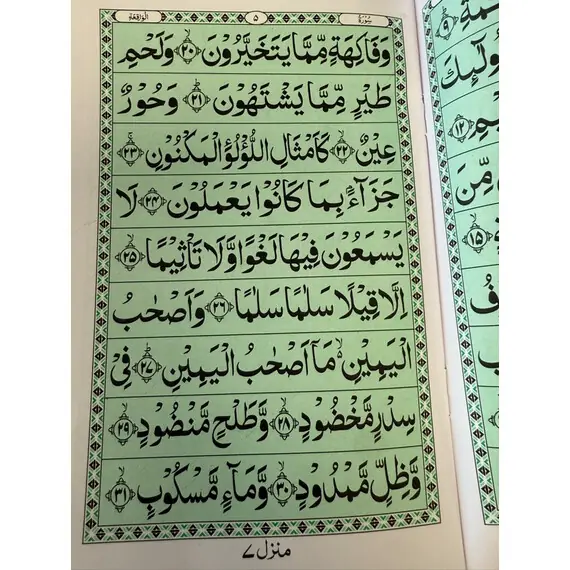 سُوْرَةُ ٥ الْوَاقِعَةِ
وَفَاكِهَةٍ مِّمَّا يَتَخَيَّرُوْنَ ۝٢٠ وَلَحْمِ
طَيْرٍ مِّمَّا يَشْتَهُوْنَ ۝٢١ وَحُوْرٌ
عِيْنٌ ۝٢٢ كَاَمْثَالِ اللُّؤْلُؤِ الْمَكْنُوْنِ ۝٢٣
جَزَآءًۢ بِمَا كَانُوْا يَعْمَلُوْنَ ۝٢٤ لَا
يَسْمَعُوْنَ فِيْهَا لَغْوًا وَّلَا تَاْثِيْمًا ۝٢٥
اِلَّا قِيْلًا سَلٰمًا سَلٰمًا ۝٢٦ وَاَصْحٰبُ
الْيَمِيْنِ ۙ مَآ اَصْحٰبُ الْيَمِيْنِ ۝٢٧ فِيْ
سِدْرٍ مَّخْضُوْدٍ ۝٢٨ وَّطَلْحٍ مَّنْضُوْدٍ ۝٢٩
وَّظِلٍّ مَّمْدُوْدٍ ۝٣٠ وَّمَآءٍ مَّسْكُوْبٍ ۝٣١
منزل ٧